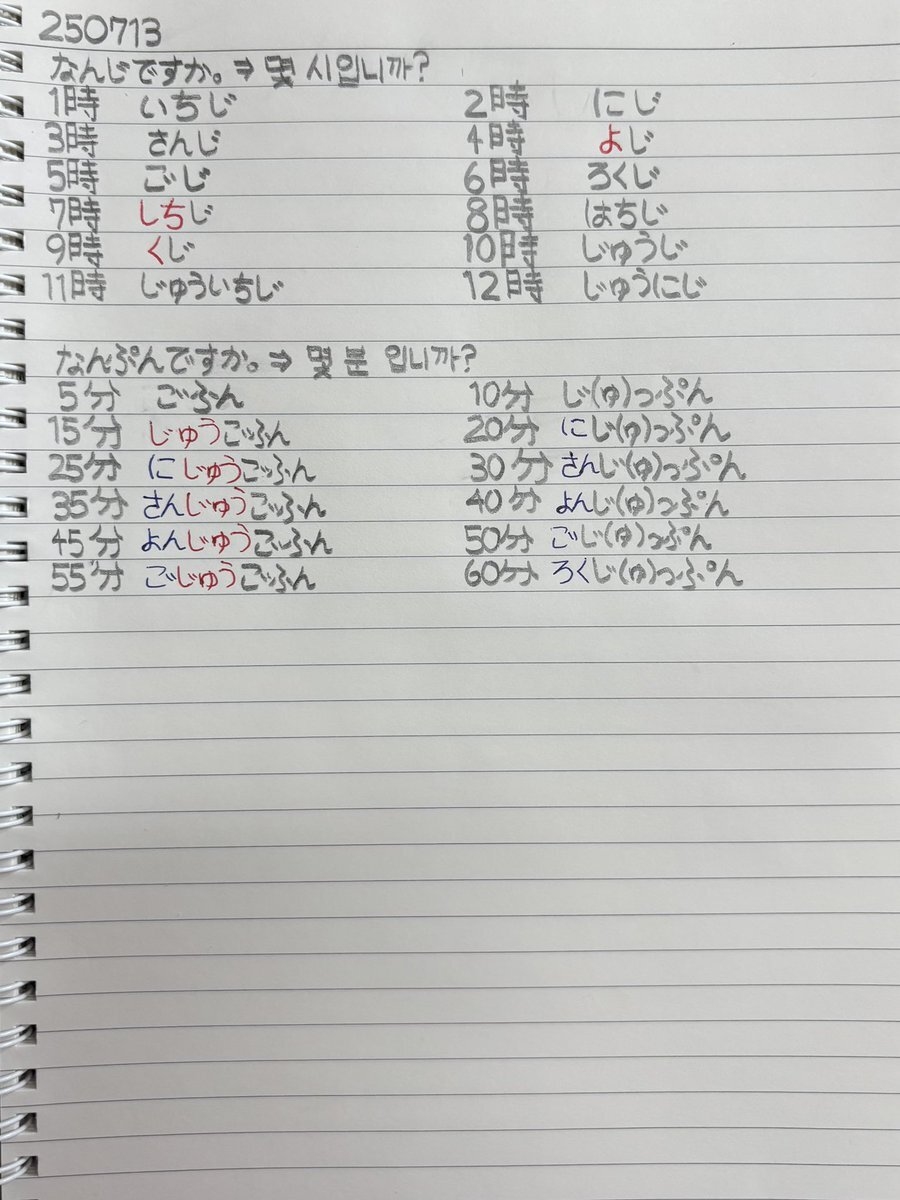 250713
なんじですか。⇒ 몇 시입니까?
1時 いちじ 2時 にじ
3時 さんじ 4時 よじ
5時 ごじ 6時 ろくじ
7時 しちじ 8時 はちじ
9時 くじ 10時 じゅうじ
11時 じゅういちじ 12時 じゅうにじ
なんぷんですか。⇒ 몇 분 입니까?
5分 ごふん 10分 じ(ゅ)っぷん
15分 じゅうごふん 20分 にじ(ゅ)っぷん
25分 にじゅうごふん 30分 さんじ(ゅ)っぷん
35分 さんじゅうごふん 40分 よんじ(ゅ)っぷん
45分 よんじゅうごふん 50分 ごじ(ゅ)っぷん
55分 ごじゅうごふん 60分 ろくじ(ゅ)っぷん